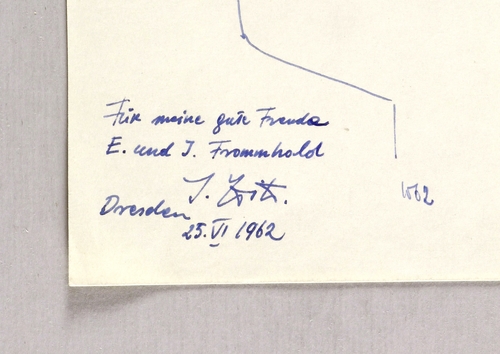 Für meine gute Freunde
E. und I. Frommhold
Dresden
25. VI 1962
W62